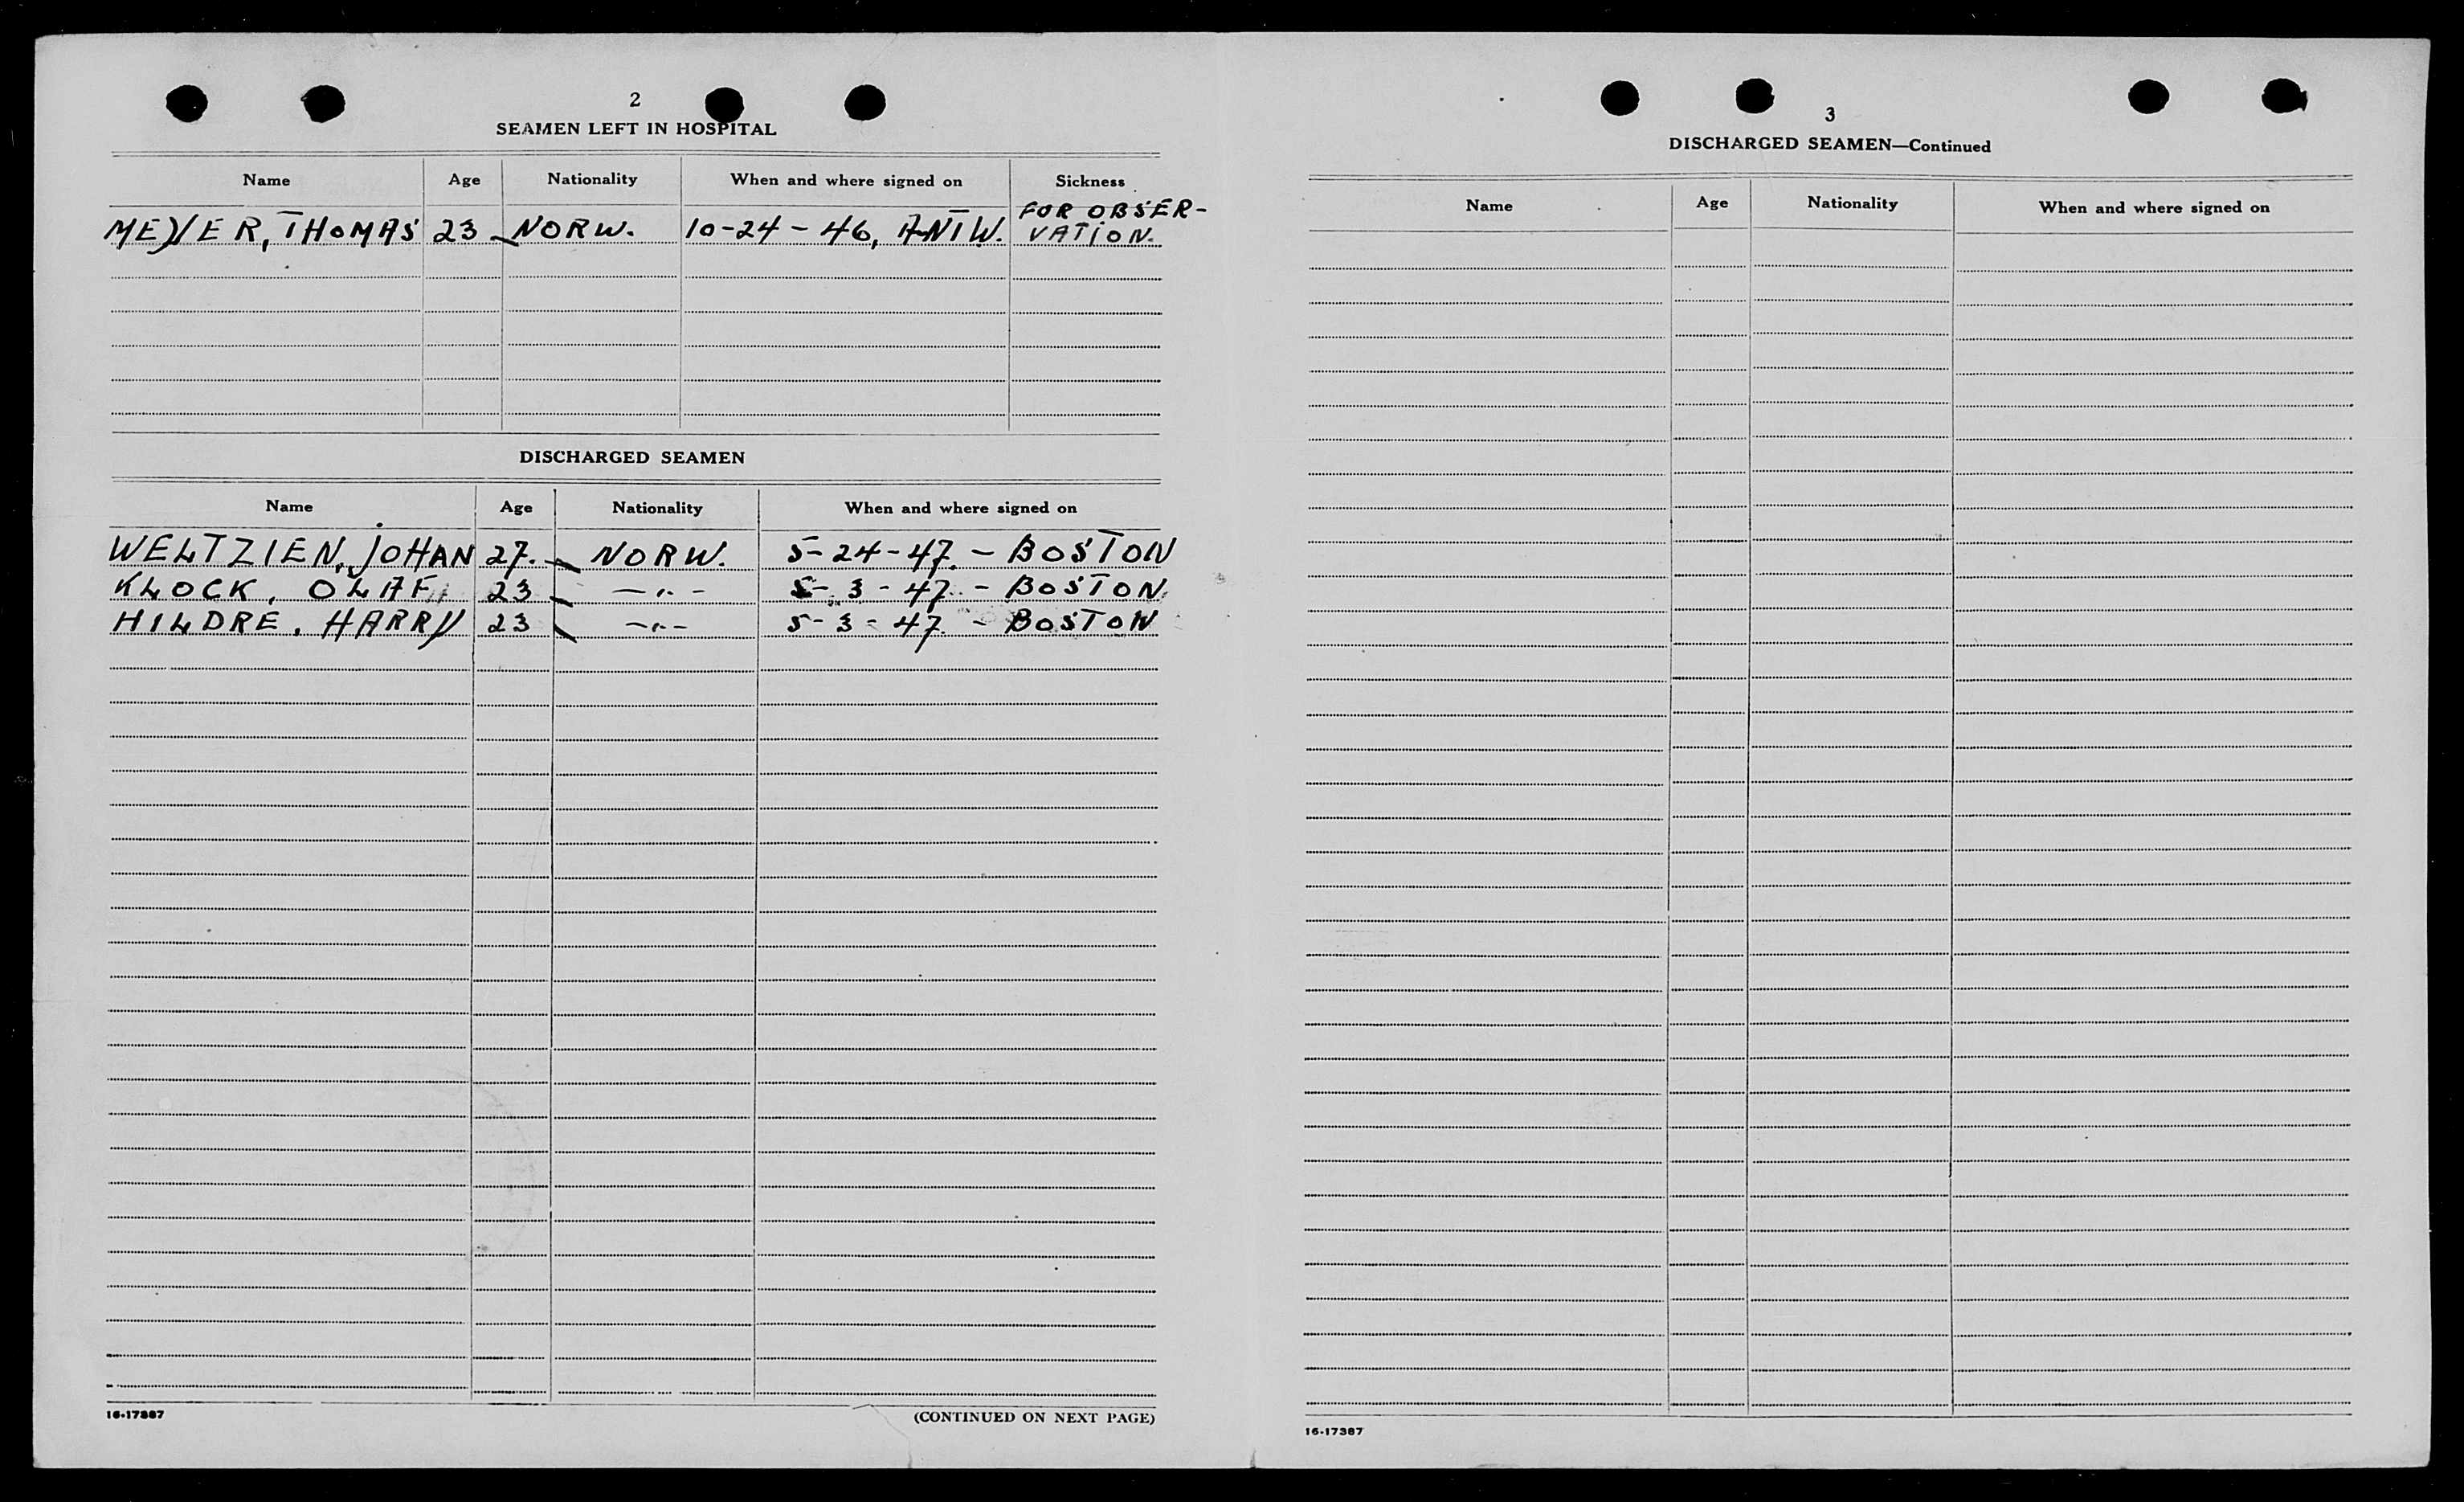 2
SEAMEN LEFT IN HOSPITAL
Name Age Nationality When and where signed on Sickness
MEYER, THOMAS 23 NORW. 10-24-46, ANTW. FOR OBSER-
VATION.
DISCHARGED SEAMEN
Name Age Nationality When and where signed on
WELTZIEN, JOHAN 27. NORW. 5-24-47. - BOSTON
KLOCK, OLAF 23 -"- 5-3-47. - BOSTON
HILDRE, HARRY 23 -"- 5-3-47. - BOSTON
16-17387
(CONTINUED ON NEXT PAGE)
3
DISCHARGED SEAMEN—Continued
Name Age Nationality When and where signed on
16-17387